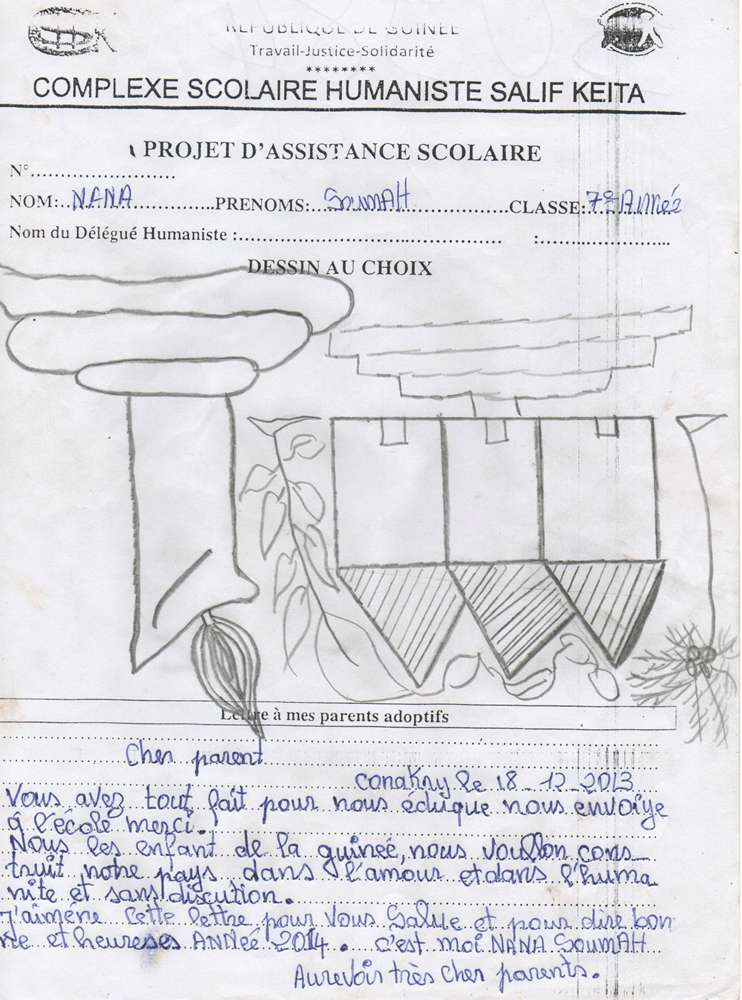 RÉPUBLIQUE DE GUINÉE
Travail-Justice-Solidarité
********
COMPLEXE SCOLAIRE HUMANISTE SALIF KEITA
PROJET D'ASSISTANCE SCOLAIRE
N°........................
NOM:..NANA................PRENOMS:...SOUMAH....................CLASSE:7e ANNéé
Nom du Délégué Humaniste :............................................... :........................
DESSIN AU CHOIX
Lettre à mes parents adoptifs
Cher parent
Conakry le 18-12-2013
Vous avez tout fait pour nous éduique nous envoiye
à l'école merci.
Nous les enfant de la guinée, nous voullon cons_
truit notre pays dans l'amour et dans l'huma
nite et sans discution.
J'aimerie cette lettre pour vous Salue et pour dire bon
ne et heureses ANNéé 2014. c'est moi NANA SOUMAH
Aurevoir très cher parents.